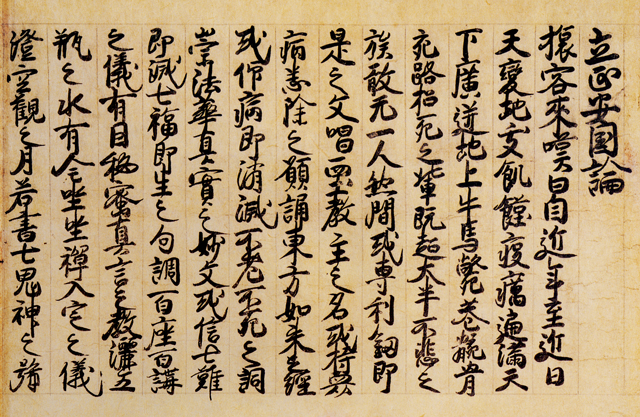 立正安国論
旅客來嘆曰自近年至近日
天變地夭飢饉疫癘遍滿天
下廣迸地上牛馬斃巷骸骨
充路招死之輩既超大半不悲之
族敢无一人然間或專利劔即
是之文唱西土教主之名或持衆
病悉除之願誦東方如来之經
或仰病即消滅不老不死之詞
崇法華真實之妙文或信七難
即滅七福即生之句調百座百講
之儀有因秘密真言之教灑五
瓶之水有全坐禪入定之儀
澄空觀之月若書七鬼神之號